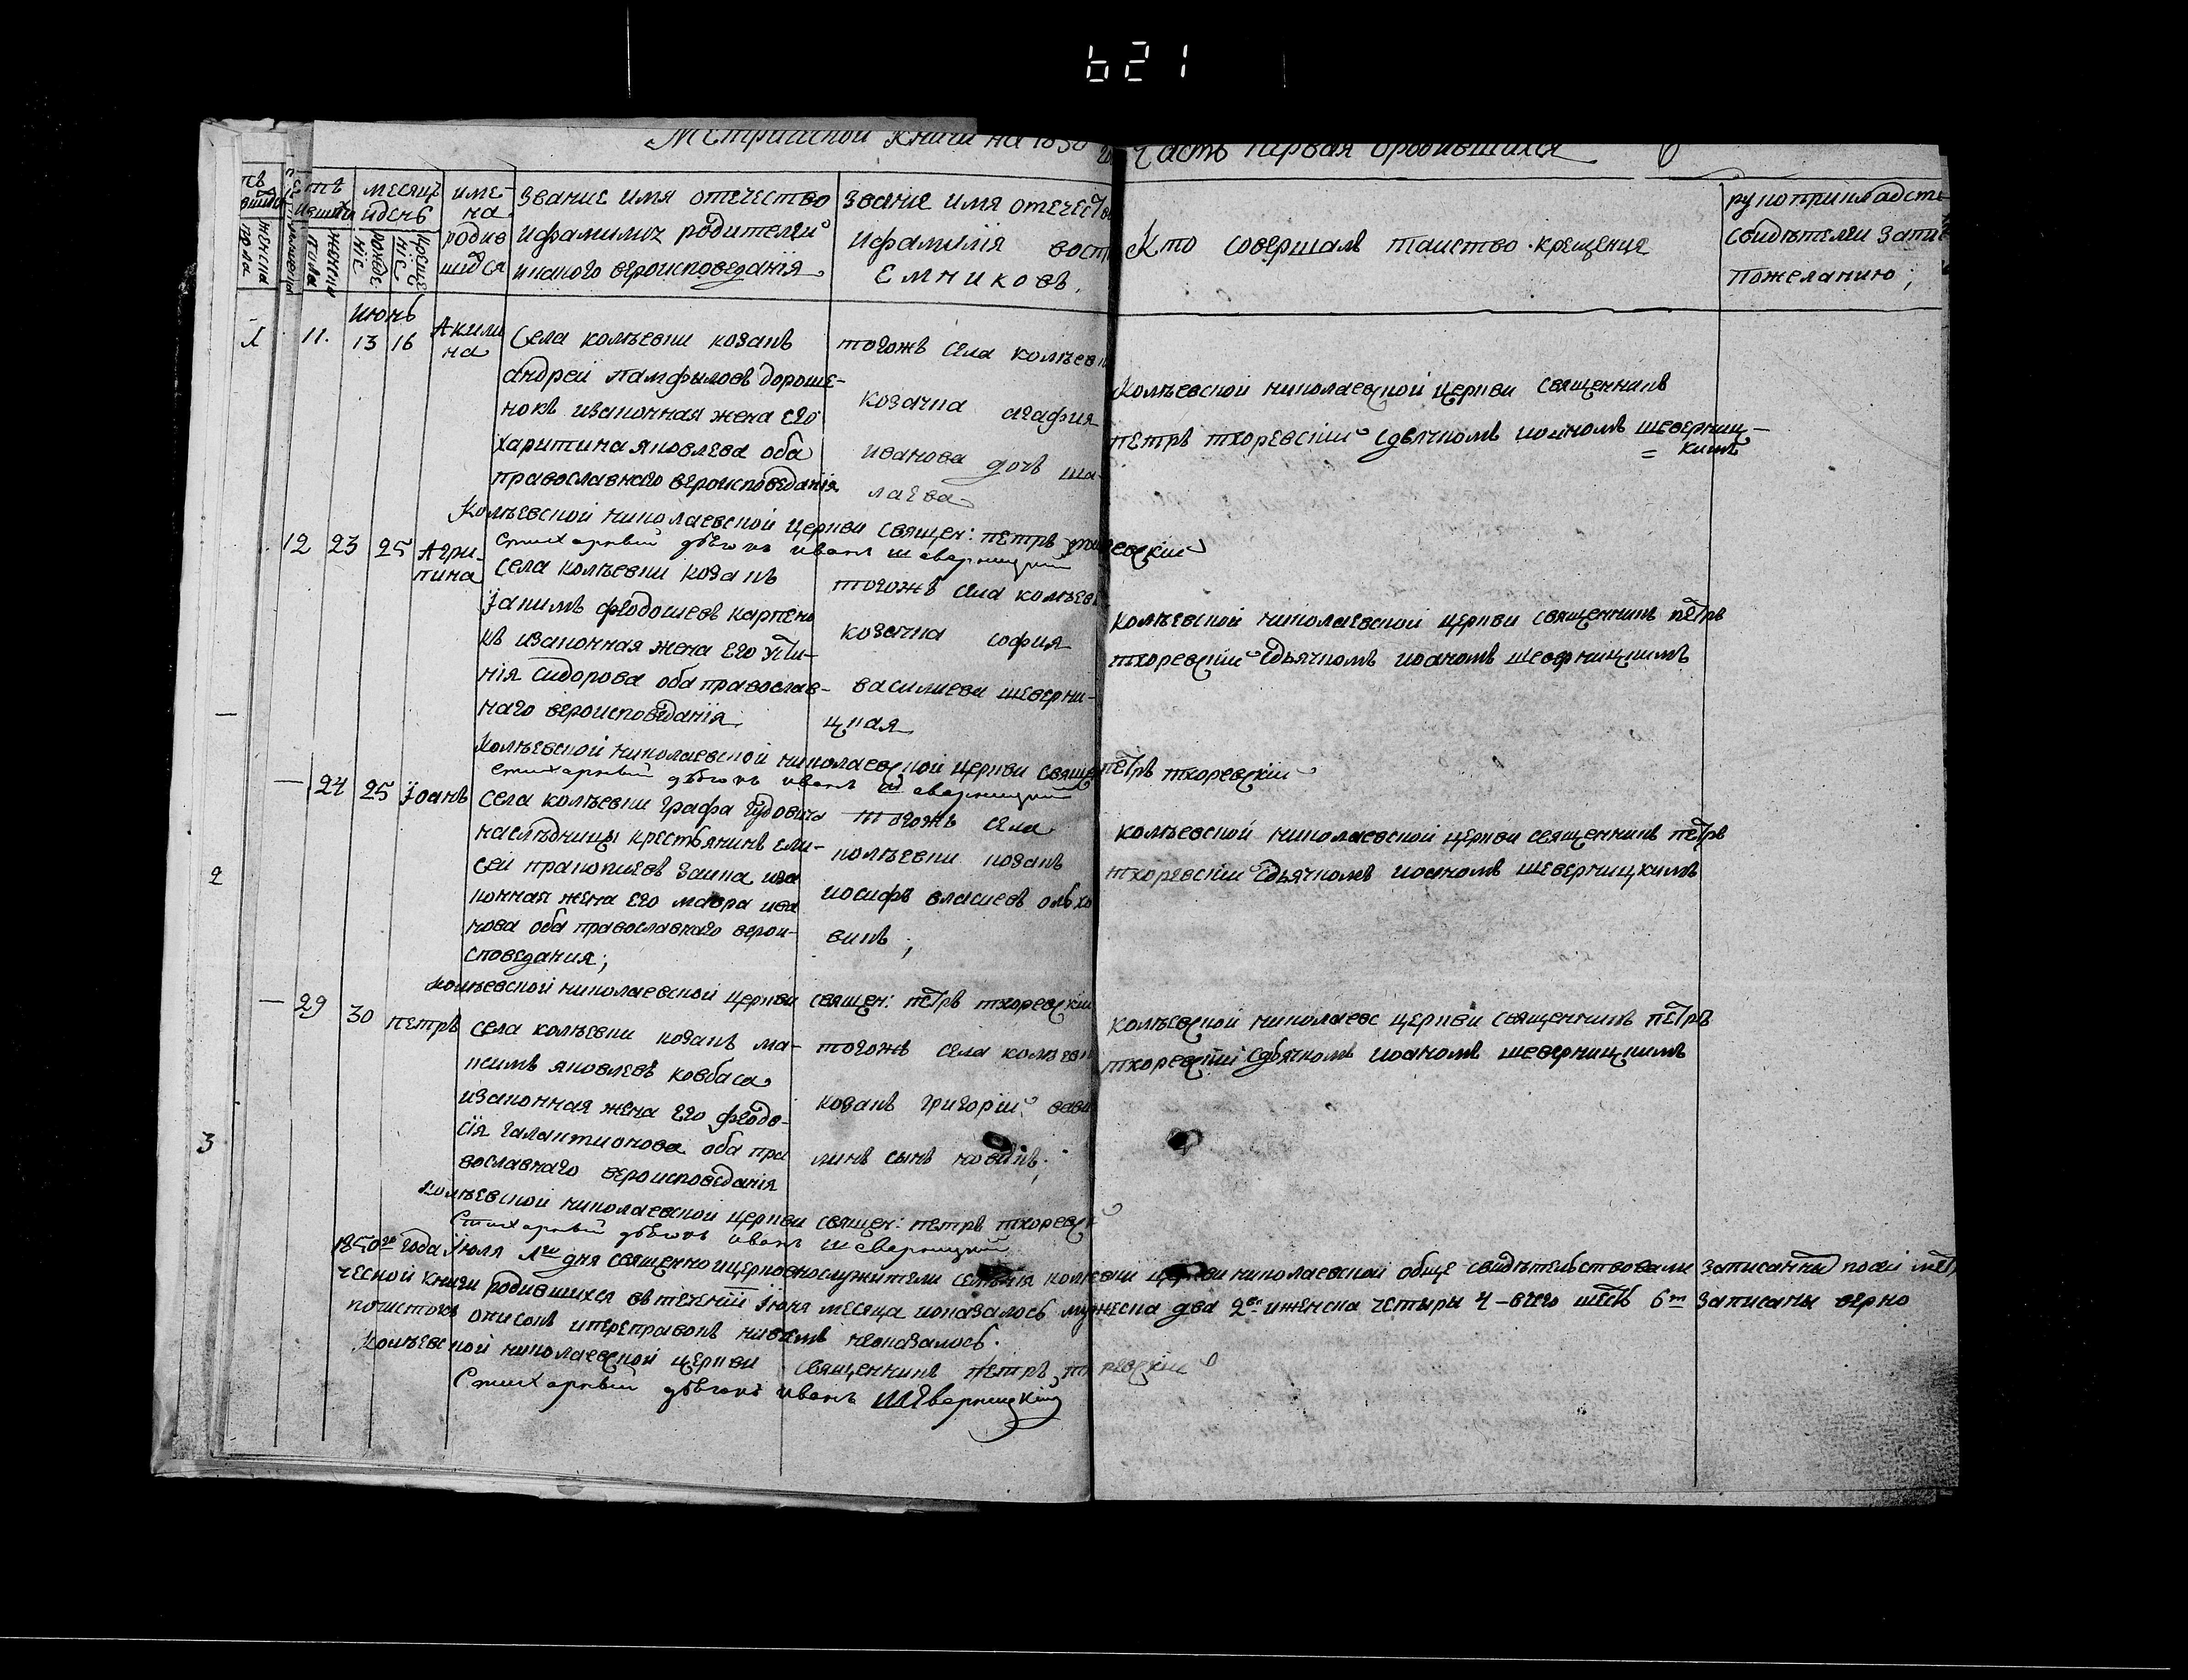 621
Метрической книги на 1850 го
Часть первая ородившихся
женска пола
женска пола
месяцъ иденъ
рожде ніе
креще ніе
име- на родив шихся
звание имя отечество
ифамилия родителей
икакого вероисповеданія
звание имя отечество
ифамилія восп
емниковъ.
Кто совершалъ таиство крещения
рукоприкладств
свидѣтелей запис
пожеланию;
июнь
11. 13 16 Акили на
Села колѣевки козакъ
андрей памфыловъ дороше-
нокъ изаконная жена его
харитина яковлева оба
православнаго вероисповеданія
тогожъ села колѣевк
козачка агафия
иванова дочь ша-
лаева
Колѣевской николаевской церкви священникъ
петръ тхоревскій сдьячкомъ иоаномъ шеверниц-
= кимъ
Колѣевской николаевской церкви священ: петръ тхоревскій
Стихарный дьячокъ иванъ шеверницкий
12 23 25 Агри- пина
села колѣевки козакъ
Іакимъ феодосиевъ карпено
къ изаконная жена его
нія сидорова оба православ-
наго вероисповеданія.
тогожъ села колѣев
козачка софия
василиева шеверни-
цкая
колѣевской николаевской церкви священникъ петръ
тхоревскій сдьячкомъ иоаномъ шеверницкимъ
Колѣевской николаевской николаевской церкви свяще петръ тхоревскій
стихарный дьячокъ иванъ шеверницкий
2 24 25 Іоанъ
села колѣевки графа Гудовича
наследницы крестьянинъ ели-
сей пракопиевъ заика иза
конная жена его мавра ива
нова оба православнаго верои-
споведания;
тогожъ села
колѣевки козакъ
иосифъ власиевъ ольхо
викъ;
колѣевской николаевской церкви священникъ петръ
тхоревскій сдьячкомъ иоаномъ шеверницкимъ
колѣевской николаевской церкви священ: петръ тхоревскій
3 29 30 петръ
села колѣевки козакъ ма-
ксимъ яковлевъ ковбаса
изаконная жена его феодо-
сія галактионова оба пра
вославнаго вероисповеданія
тогожъ села колѣевк
козакъ григорій вави
линъ сынъ новикъ;
колѣевской николаевс церкви священникъ петръ
тхоревскій сдьячкомъ иоаномъ шеверницкимъ
колѣевской николаевской церкви священ: петръ тхоревск
Стихарный дьячокъ иванъ шеверницкий
1850го года Іюля 1го дня священноицерковнослужители селенія колѣевки церкви николаевской обще свидѣтельствовали записанных посей мет
ческой книги родившихся втечении Іюня месяца ипоказалось мужеска два 2 иженска четыри 4 - всего шесть 6 записаны верно
почистокъ описокъ ипереправокъ никакихъ непоказалось.
Колѣевской николаевской церкви священникъ петръ тхоревскій
Стихарный дьячокъ иванъ Шеверницкій